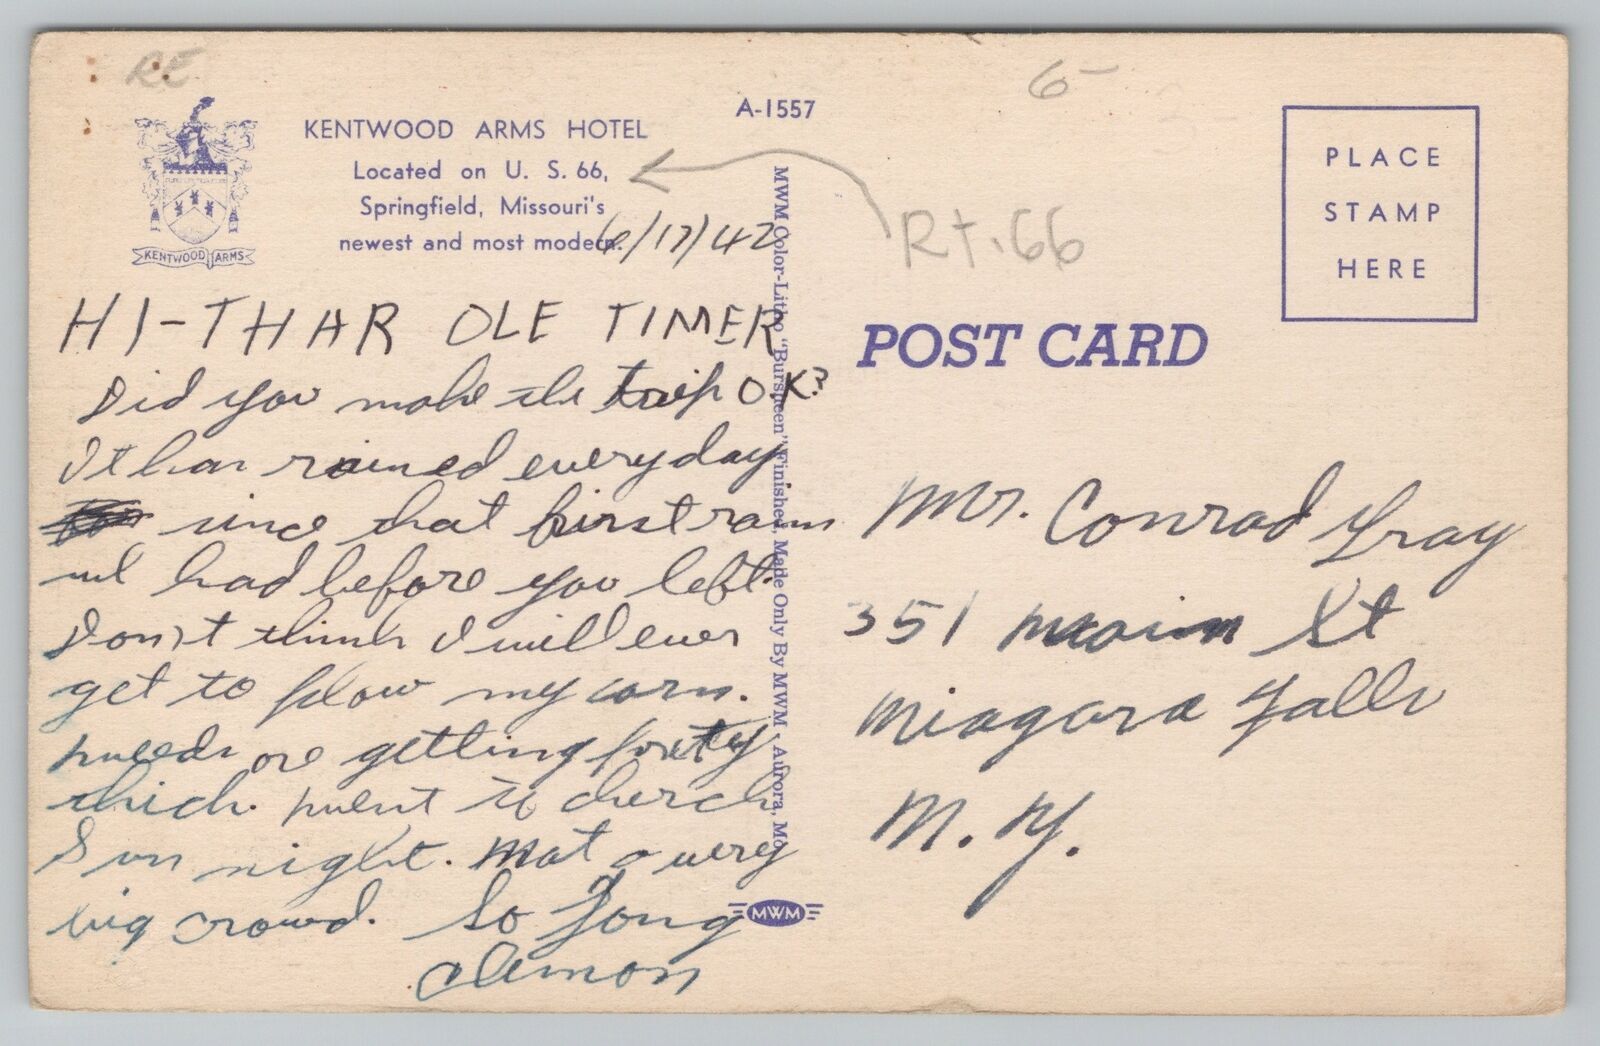 RE
6-
A-1557
KENTWOOD ARMS HOTEL
Located on U. S. 66,
Springfield, Missouri's
newest and most modern.
KENTWOOD ARMS
6/17/42
Rt. 66
PLACE
STAMP
HERE
POST CARD
HI-THAR OLE TIMER
Did you make the trip O.K?
It has rained every day
since that first rain
we had before you left.
Don't think I will ever
get to plow my corn.
weeds are getting pretty
thick. went to church
Sun night. Not a very
big crowd. So Long
Clemon
MWM Color-Litho "Burspeen" Finished, Made Only By MWM, Aurora, Mo.
MWM
Mr. Conrad Gray
351 main St
Niagara Falls
N. Y.